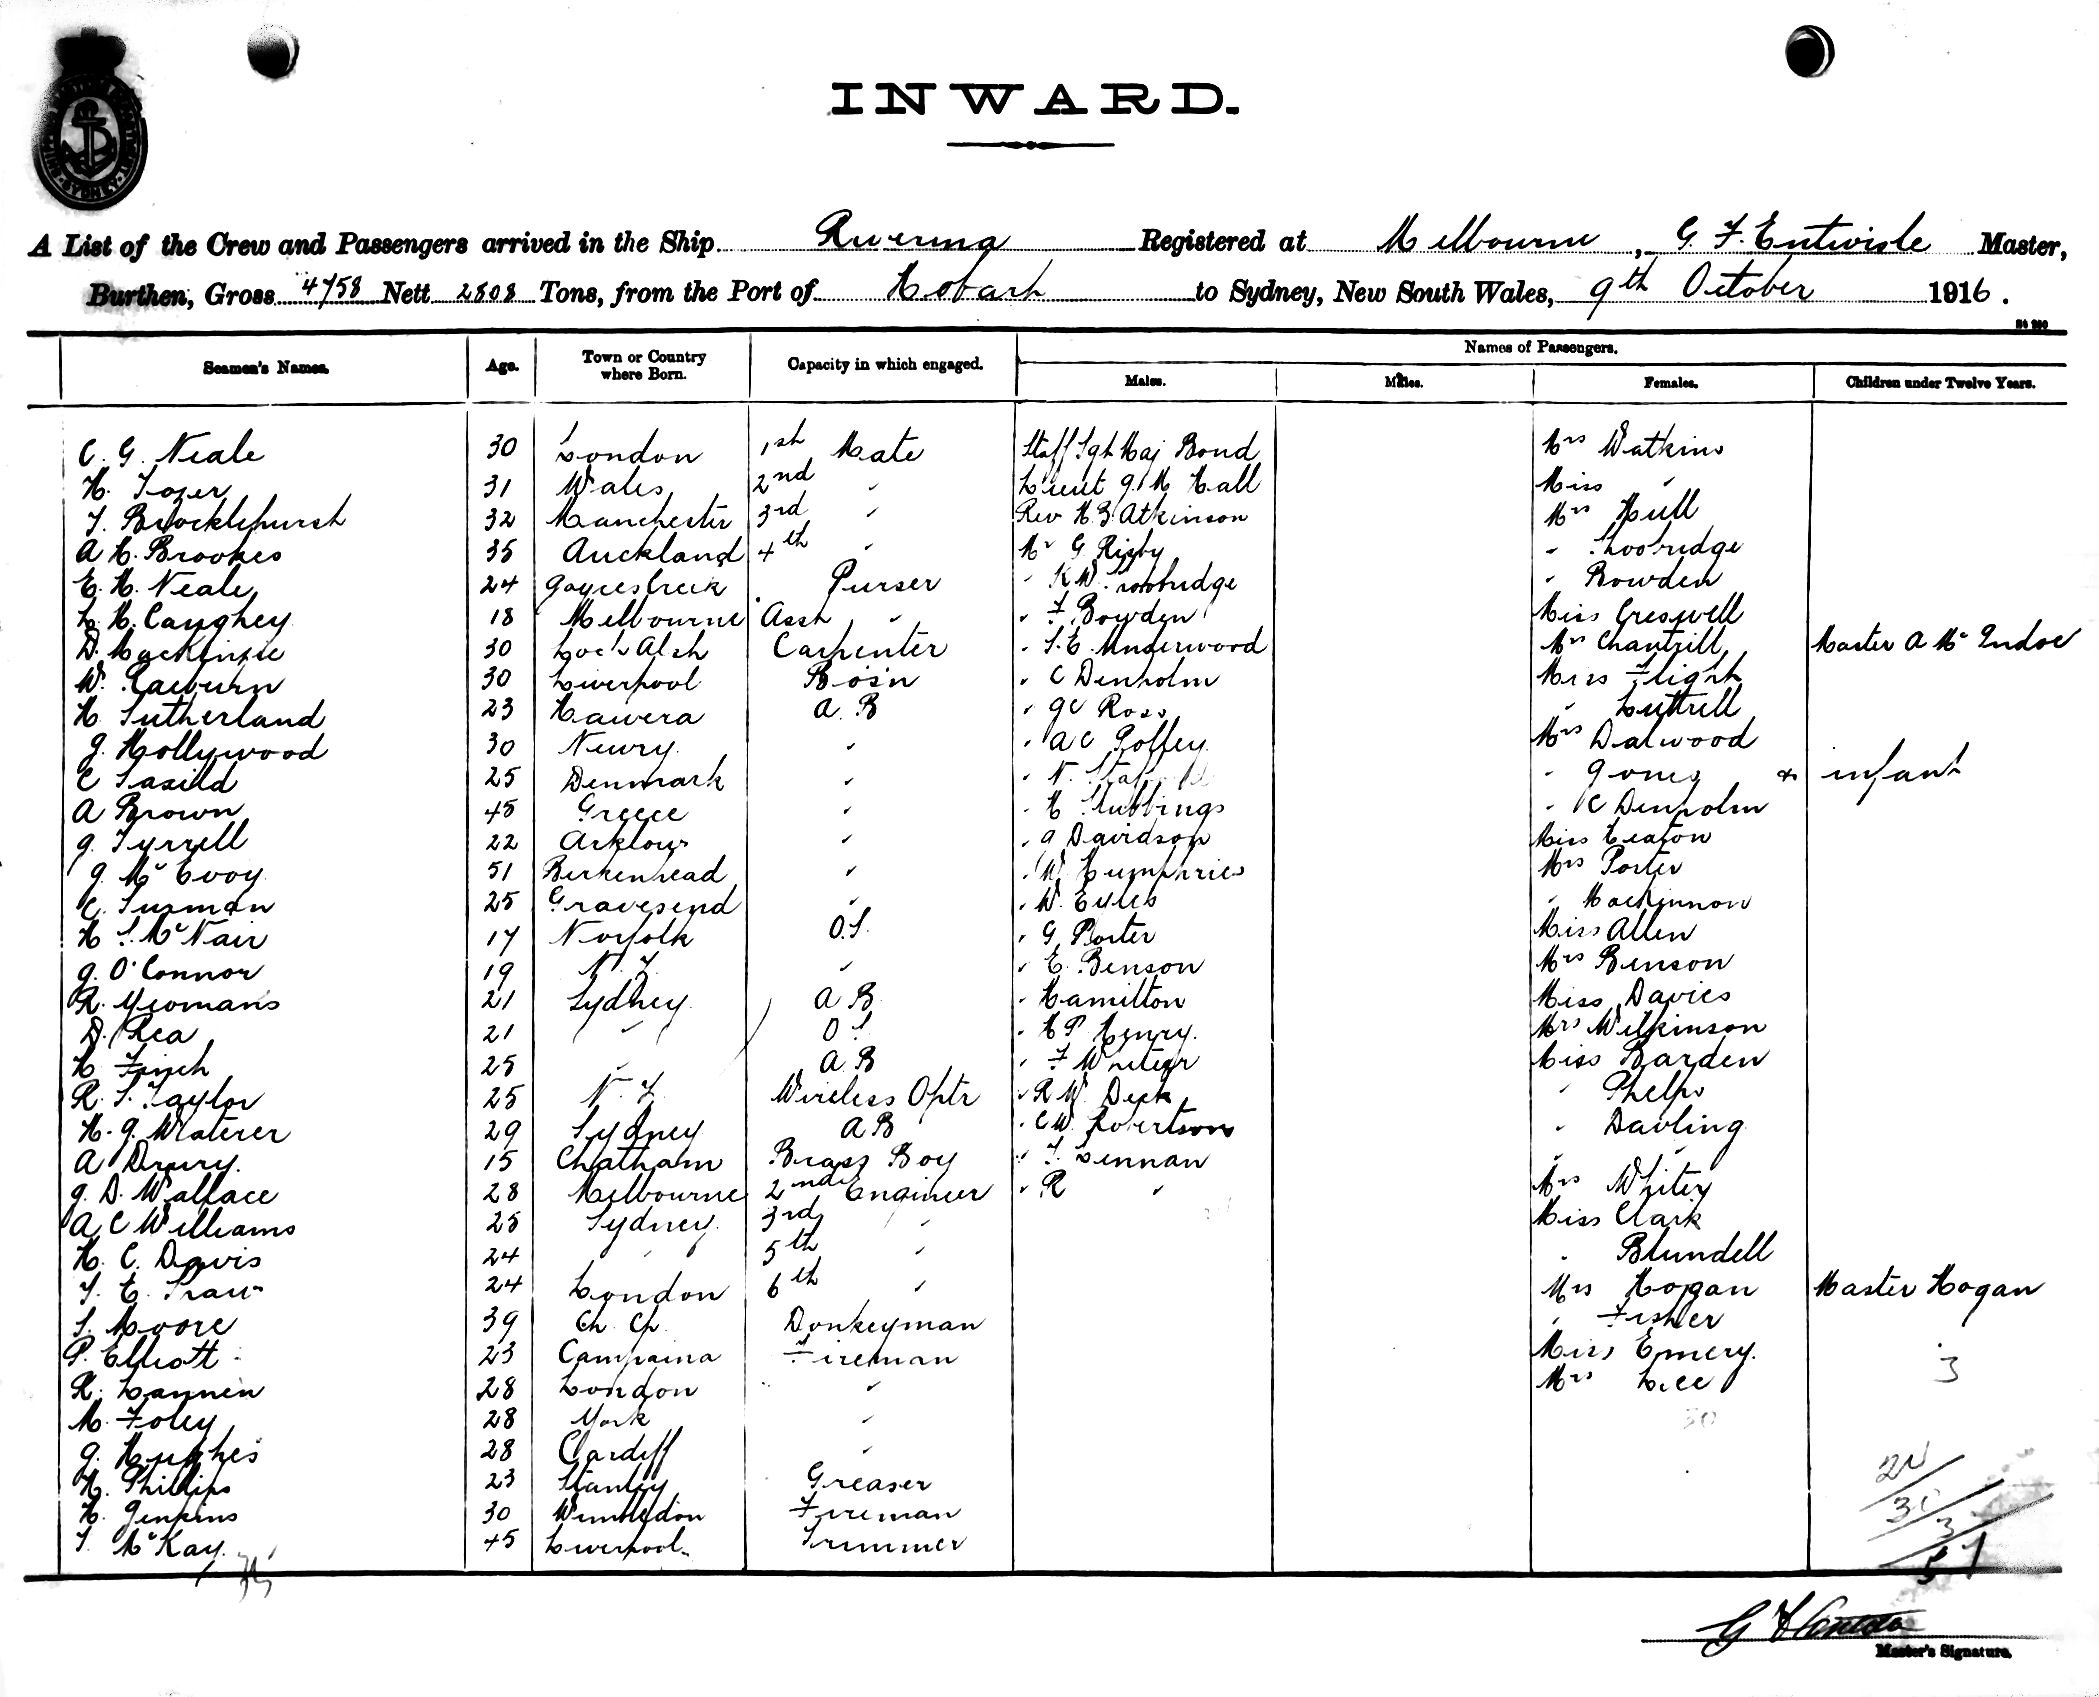 INWARD.
A List of the Crew and Passengers arrived in the Ship Riverina Registered at Melbourne, G. F. Entwisle Master,
Burthen, Gross 4758 Nett 2808 Tons, from the Port of Hobart to Sydney, New South Wales, 9th October 1916.
Names of Passengers.
Seamen's Names. Age. Town or Country where Born. Capacity in which engaged. Males. Males. Females. Children under Twelve Years.
C. G. Neale 30 London 1st Mate Staff Sgt Maj Bond Mrs Watkins
H. Tozer 31 Wales 2nd " Lieut G. M. Hall Miss "
T. Brocklehurst 32 Manchester 3rd " Rev H. B. Atkinson Mrs Hull
A H. Brookes 35 Auckland 4th " Mr G Rigby " Shoobridge
E. H. Neale 24 Purser " K W. Shoobridge " Bowden
L. H. Caughey 18 Melbourne Asst " " F. Bowden Miss Creswell
D. MacKenzie 30 Loch Alsh Carpenter " S. E. Underwood Mrs Chantrill Master A McIndoe
W. 30 Liverpool Bos'n " C Denholm Miss Flight
H. Sutherland 23 Hawera A. B " Ross " Luttrell
J. Hollywood 30 Newry " " A C Mrs Dalwood
C 25 Denmark " " N. " Jones & infant
A Brown 45 Greece " " H Stubbings " C Denholm
J. Tyrrell 22 Arklow " " Davidson Miss Heaton
J. McEvoy 51 Birkenhead " " W. Humphries Mrs Porter
C. 25 Gravesend " " W. Eyles " Mackinnon
H S. McNair 17 Norfolk O.S. " G. Porter Miss Allen
J. O'Connor 19 N. Z. " " E. Benson Mrs Benson
R. Yeomans 21 Sydney A B " Hamilton Miss Davies
D. Rea 21 " O S " H P Henry. Mrs Wilkinson
H Finch 25 " A B " F Whitey Miss Barden
R. S. Taylor 25 N. Z. Wireless Optr " R W. Deck " Phelps
H. J. Waterer 29 Sydney A B " C W. Robertson " Darling
A Drury. 15 Chatham Brass Boy " T. Lennan " "
J. D. Wallace 28 Melbourne 2nd Engineer " R " Mrs Whitey
A C Williams 25 Sydney. 3rd " Miss Clark
H. C. Davis 24 " 5th " " Blundell
24 London 6th " Mrs Hogan Master Hogan
S. Moore 39 Ch. Ch. Donkeyman " Fisher
P. Elliott 23 Campania Fireman Miss Emery. 3
R. Lannen 28 London " Mrs Lee
M. Foley 28 York " 30
J. Hughes 28 Cardiff "
H. Phillips 23 Stanley Greaser
H. Jenkins 30 Wimbledon Fireman
T. McKay. 45 Liverpool. Trimmer
3
57
Master's Signature.